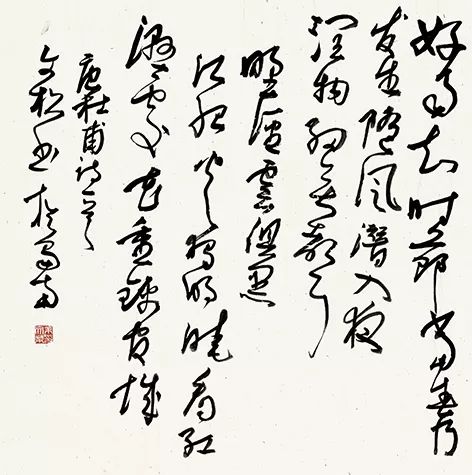 好雨知时節当春乃
发生隨风潜入夜
润物细无声
野径雲俱黑
江船火独明晓看红
湿处花重锦官城
唐杜甫诗一首